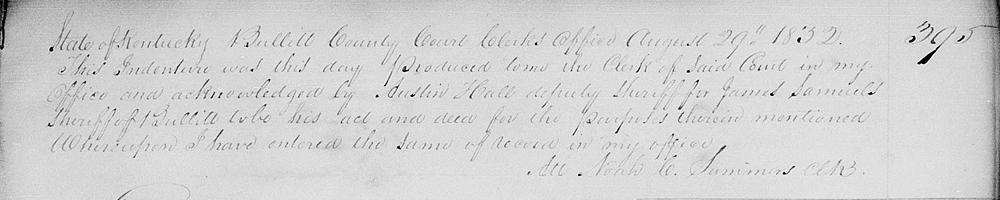 State of Kentucky Bullitt County Court Clerks Office August 29th 1832. 395
This Indenture was this day produced to me the Clerk of said Court in my
Office and acknowledged by Austin Hall deputy Sheriff for James Samuels
Sheriff of Bullitt to be his act and deed for the purposes therein mentioned
Whereupon I have entered the same of record in my office
Att Noah C. Summers Clk.